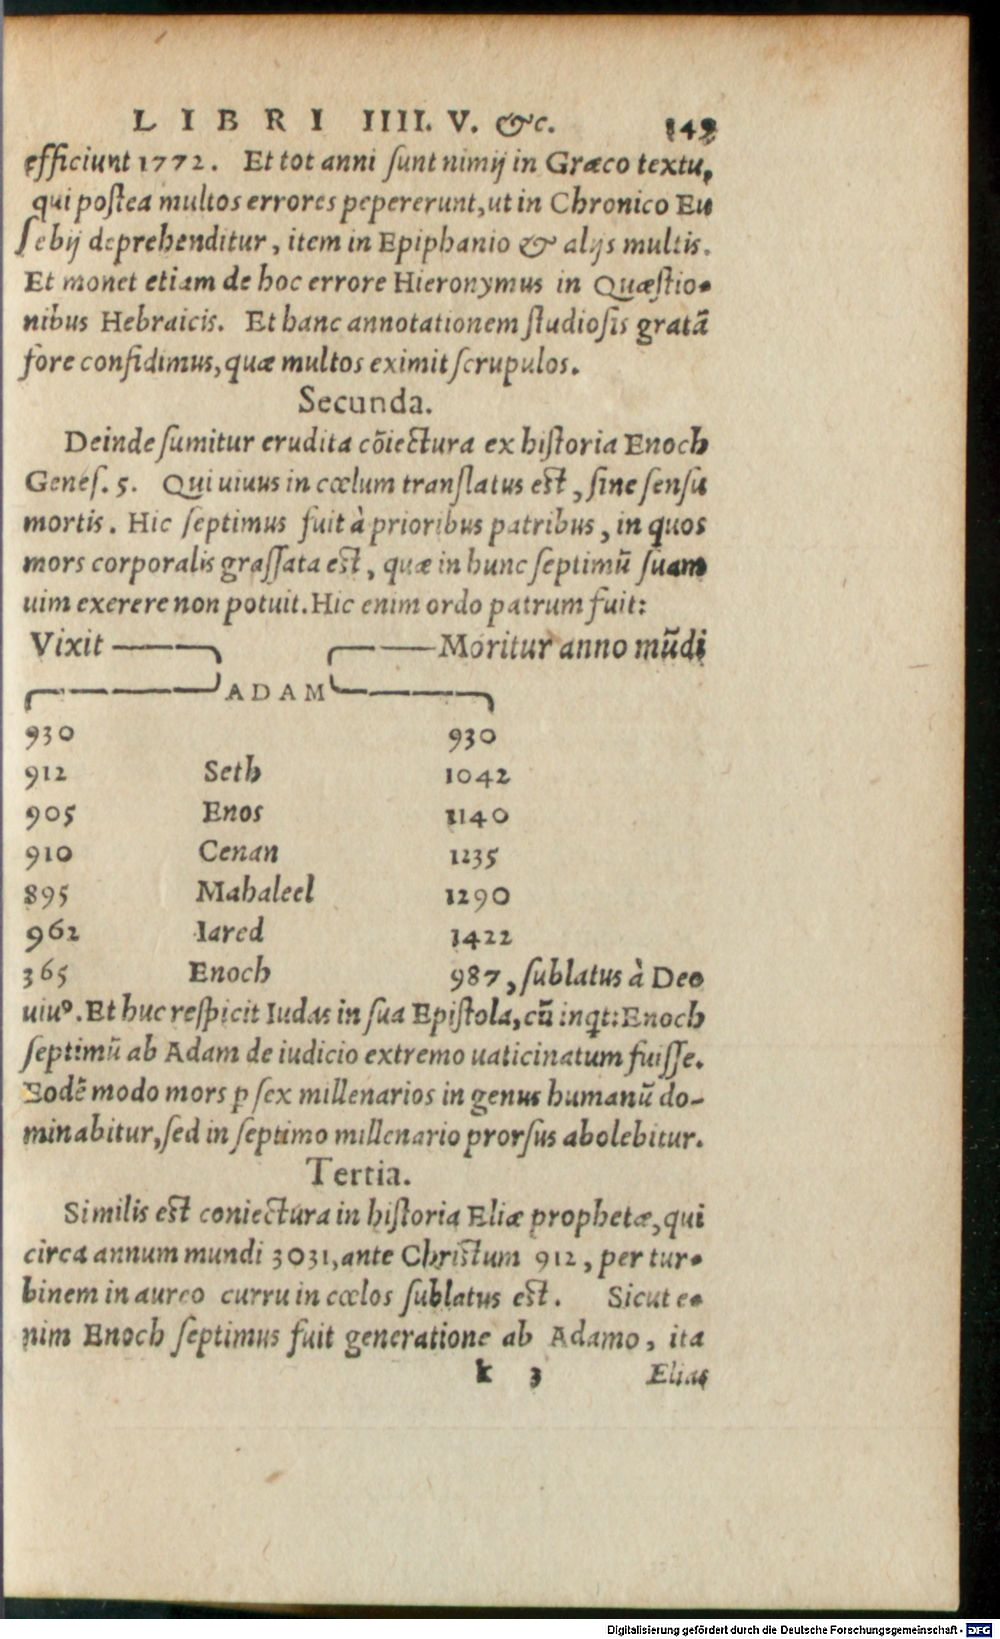 LIBRI IIII. V. &c. 149
efficiunt 1772. Et tot anni ſunt nimij in Græco textu,
qui poſtea multos errores pepererunt, ut in Chronico Eu
ſebij deprehenditur, item in Epiphanio & alijs multis.
Et monet etiam de hoc errore Hieronymus in Quæſtio-
nibus Hebraicis. Et hanc annotationem ſtudioſis gratã
fore confidimus, quæ multos eximit ſcrupulos.
Secunda.
Deinde ſumitur erudita cõiectura ex hiſtoria Enoch
Geneſ. 5. Qui uiuus in cœlum translatus eſt, ſine ſenſu
mortis. Hic ſeptimus fuit à prioribus patribus, in quos
mors corporalis graſſata eſt, quæ in hunc ſeptimũ ſuam
uim exerere non potuit. Hic enim ordo patrum fuit:
Vixit Moritur anno mũdi
ADAM
930 930
912 Seth 1042
905 Enos 1140
910 Cenan 1235
895 Mahaleel 1290
962 Iared 1422
365 Enoch 987, ſublatus à Deo
uiuꝰ. Et huc reſpicit Iudas in ſua Epiſtola, cũ inqt: Enoch
ſeptimũ ab Adam de iudicio extremo uaticinatum fuiſſe.
Eodẽ modo mors ꝑ ſex millenarios in genus humanũ do-
minabitur, ſed in ſeptimo millenario prorſus abolebitur.
Tertia.
Similis eſt coniectura in hiſtoria Eliæ prophetæ, qui
circa annum mundi 3031, ante Chriſtum 912, per tur-
binem in aureo curru in cœlos ſublatus eſt. Sicut e-
nim Enoch ſeptimus fuit generatione ab Adamo, ita
k 3 Elias
Digitalisierung gefördert durch die Deutsche Forschungsgemeinschaft - DFG